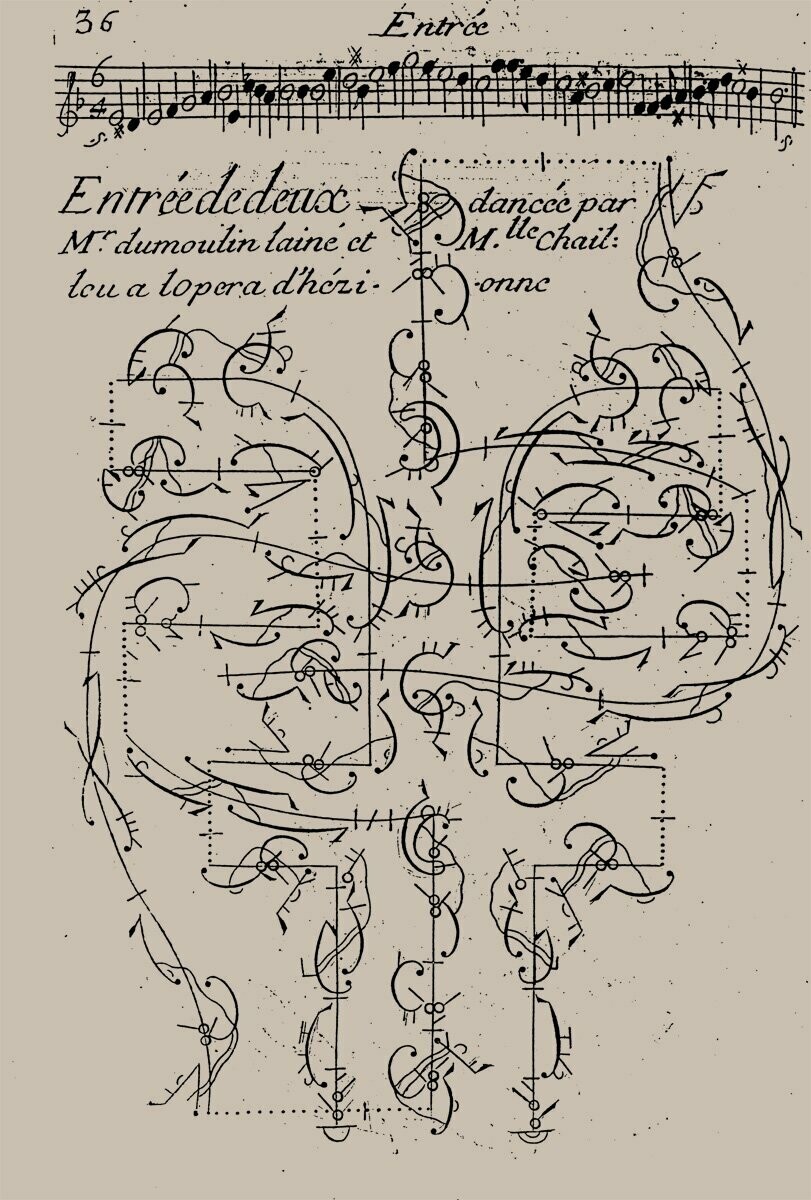 36
Entrée
6
4
Entrée de deux dancée par
Mr. dumoulin lainé et M.lle Chail:
leu a lopera d'hézi-onne